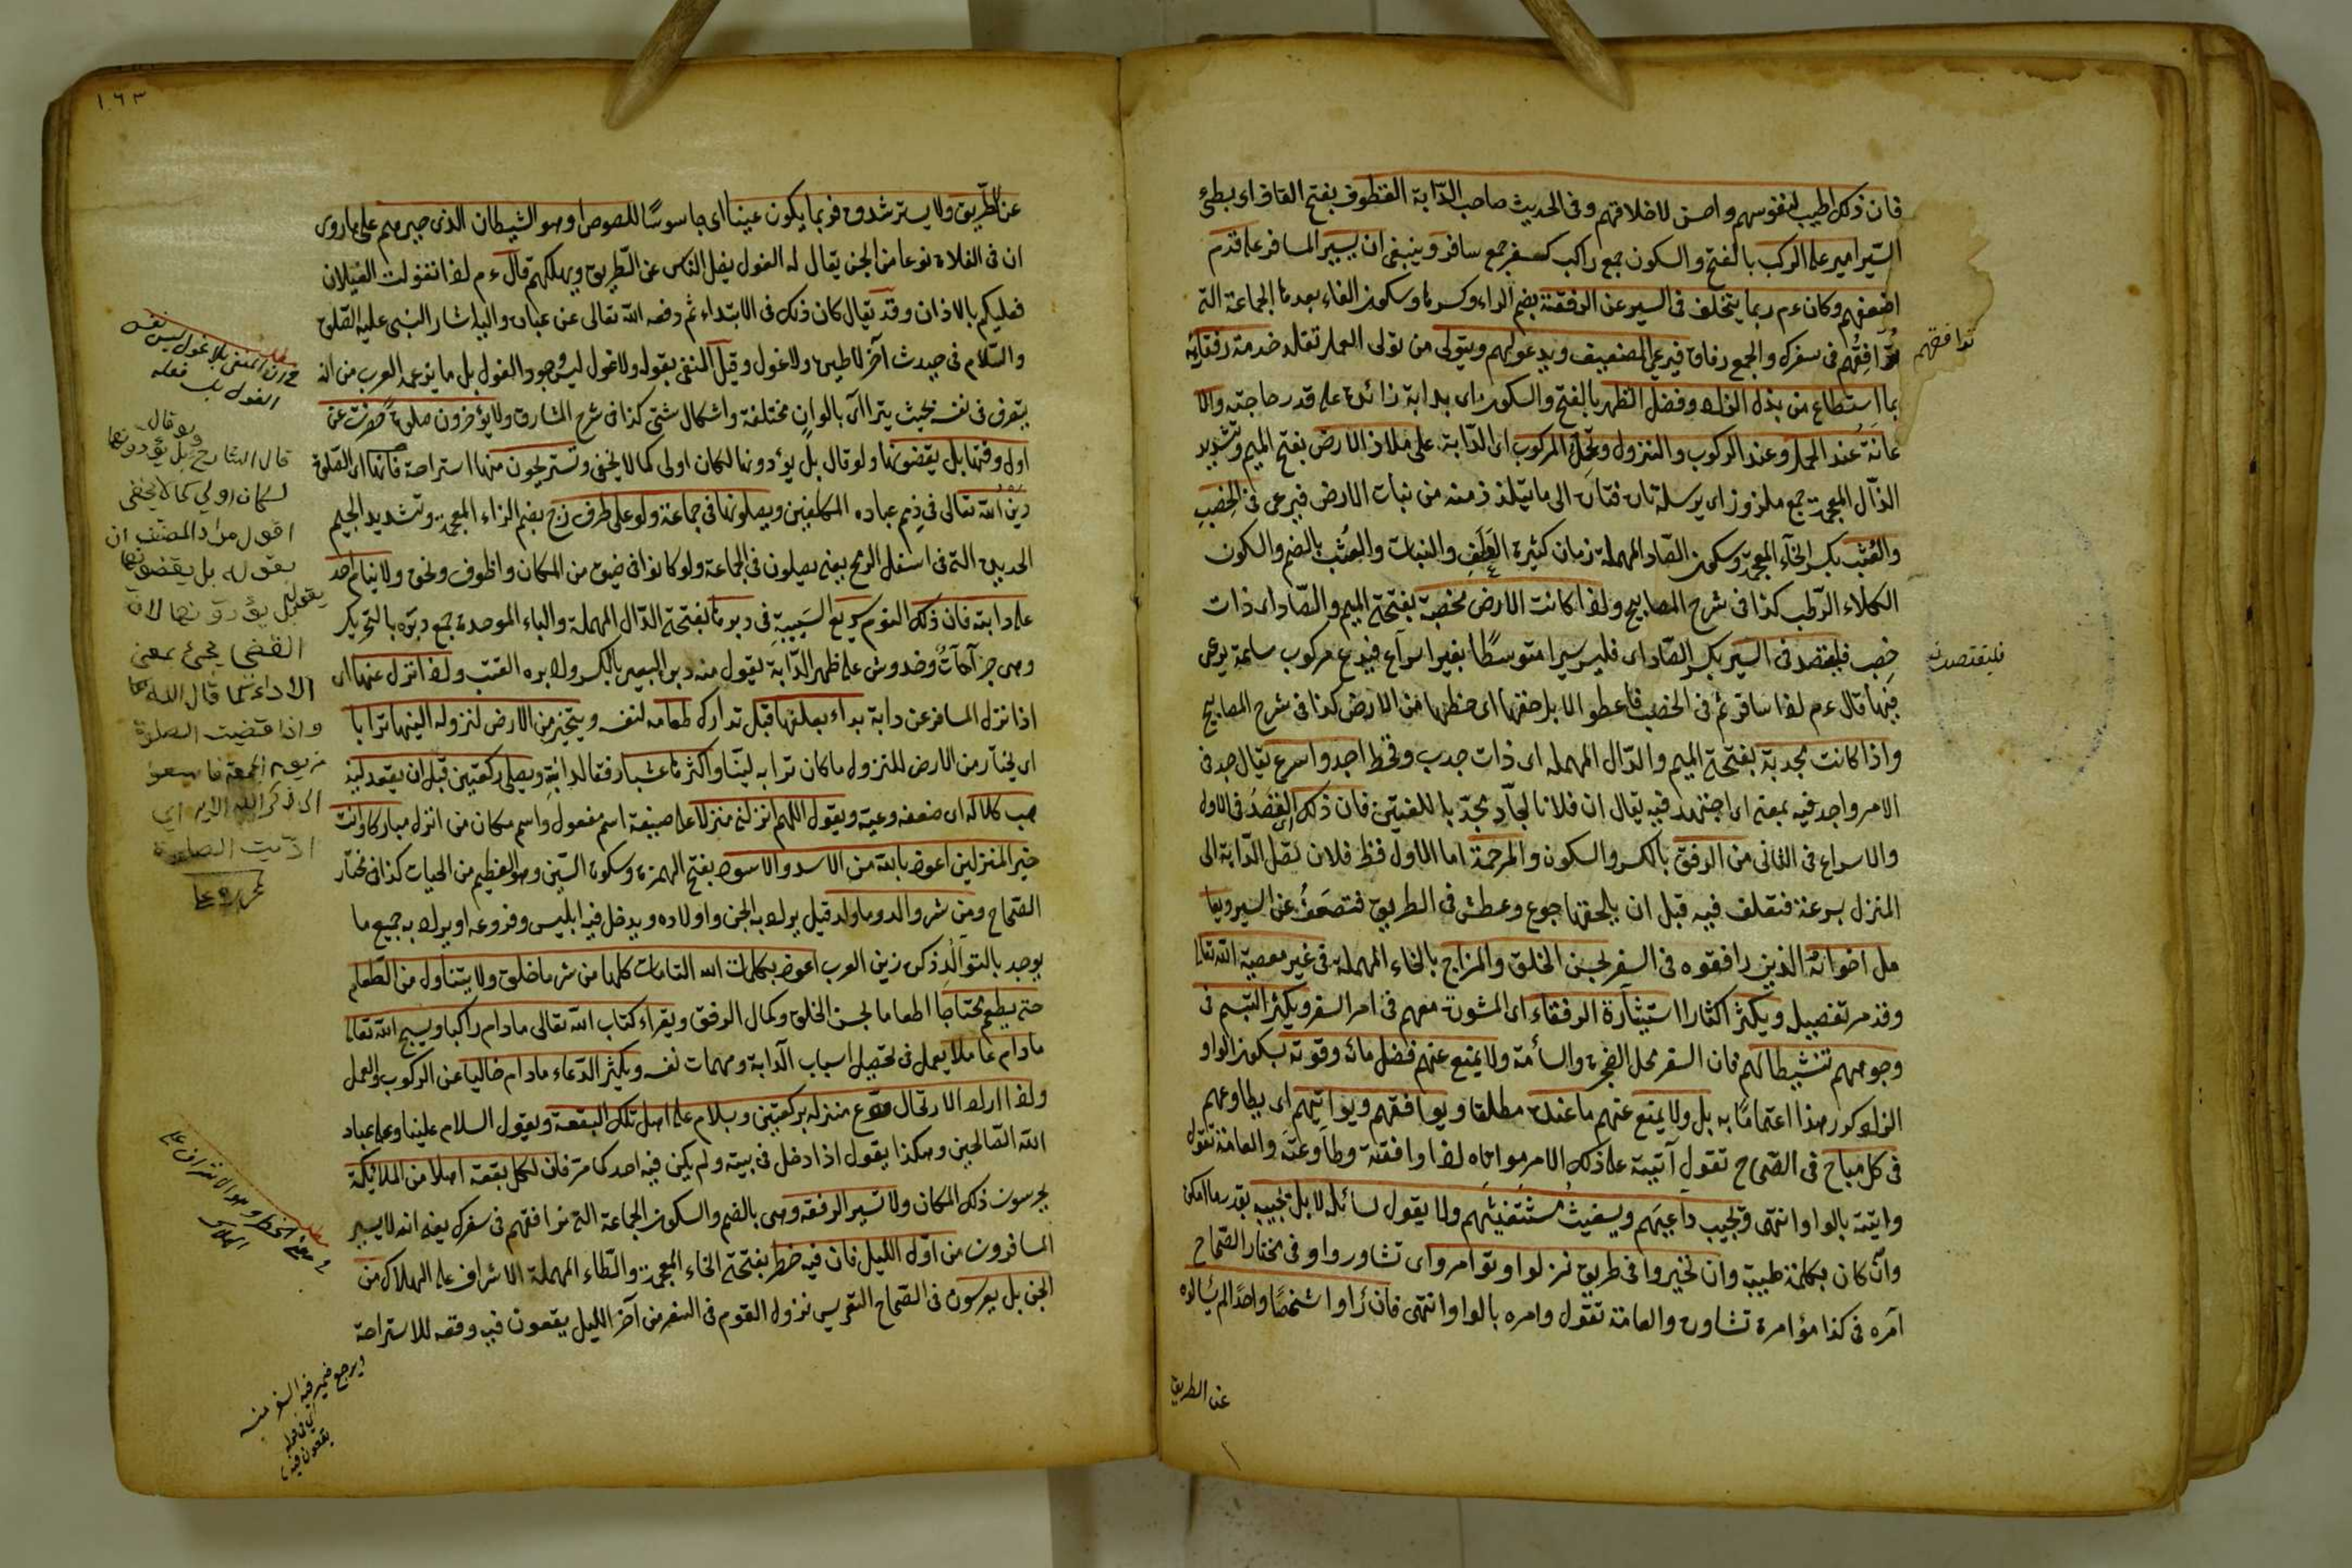 فان ذلك اطيب لنفوسهم واحسن لاخلاقهم وفى الحديث صاحب الدّابة القطوف بفتح القاف اى بطئ
السّير امير على الركب بالفتح والسكون جمع راكب كسفر جمع سافر وينبغى ان يسير المسافر على قدم
اضعفهم وكان ءم ربما يتخلف فى السير عن الرفقة بضم الراء وكسرها وسكون الفاء بعدها الجماعة التى
تُرَافِقُهم فى سفرك والجمع رفاق فيزجى الضعيف ويدعو لهم ويتولى من تولى العمل تقلد خدمة رفقائه
توافقهم
بما استطاع من بذل الزاد وفضل الظهر بالفتح والسكون اى بدابة زائدة على قدر حاجته والا
عانة عند الحمل وعند الركوب والنزول ويحل المركوب اى الدّابة على ملاذ الارض بفتح الميم وتشديد
الذّال المعجمة جمع ملذوذ اى يرسله الى ما يتلذذ منه من نبات الارض فيرعى فى الخصب
والعُشب بكسر الخآء المعجمة وسكون الصّاد المهملة زمان كثيرة العَلَف والنبات والعشب بالضم والسكون
الكلاء الرّطب كذا فى شرح المصابيح واذا كانت الارض مخصبة بفتحة الميم والصّاد اى ذات
خصب فليقتصد فى السّير بكسر الصّاد اى فليسر سيرا متوسطًا بغير اسراع فيدع مركوب ساعة يرعى
فليقتصد
فيها قال ءم اذا سافرتم فى الخصب فاعطوا الابل حقها اى حظها من الارض كذا فى شرح المصابيح
واذا كانت مجدبة بفتحة الميم والدّال المهملة اى ذات جدب وقحط اجد واسرع يقال جد فى
الامر واجد فيه بمعنى اى اجتهد فيه يقال ان فلانا لجآد مجدّ باللغتين فان ذلك اى القصد فى الاول
والاسراع فى الثانى من الرفق بالكسر والسكون والمرحمة اما الاول فظ فلان تصل الدّابة الى
المنزل بسرعة فتعلف فيه قبل ان يلحقها جوع وعطش فى الطريق فتضعف عن السير ويعا
مل اخوانه الذين رافقوه فى السفر بحسن الخلق والمزاح بالحاء المهملة فى غير معصية الله تعالى
وقد مر تفصيل ويكثر اكثارا استشارة الرفقاء اى المشورة معهم فى امر السفر ويكثر التبسم فى
وجوههم تنشيطا لهم فان السفر محل الضجرة والسأمة ولا يمنع عنهم فضل مائه وقوته بسكون الواو
الزاد كور هذا اعتمامًا به بل ولا يمنع عنهم ما عنده مطلقا ويوافقهم ويواتيهم اى يطاوعهم
فى كل مباح فى الصّحاح تقول آتيته على ذلك الامر مواتاه اذا وافقته وطاوعته والعامة تقول
واتيته بالواو انتهى ويجيب داعيهم ويغيث مستغيثهم ولا يقول لسائله لا بل يجيبه بقدر ما امكن
وآن كان بكلمة طيبة وان تحيروا فى طريق نزلوا وتوامروا اى تشاوروا وفى مختار الصّحاح
آمره فى كذا مؤامرة تشاوره والعامة تقول وامره بالواو انتهى فان رأوا شخصًا واحدًا لم يسألوه
عن الطريق
١٦٣
عن الطّريق ولا يسترشدوه فربما يكون عينا اى جاسوسًا للصوص او هو الشيطان الذى حيرهم على ما روى
ان فى الفلاة نوعا من الجن يقال له الغول يضل الناس عن الطّريق ويهلكهم قال ءم اذا تغولت الغيلان
فعليكم بالاذان وقد يقال كان ذلك فى الابتداء ثم دفعه الله تعالى عن عباده واليه اشار النبى عليه الصّلوة
والسّلام فى حديث آخر لا طيرة ولا غول وقيل المنفى بقوله ولا غول ليس وجود الغول بل ما يزعمه العرب من انه
يتصرف فى نفسه بحيث يتراآى بالوان مختلفة واشكال شتى كذا فى شرح المشارق ولا يؤخرون صلوة حضرت عن
اول وقتها بل يقضونها ولو قال بل يؤدونها لكان اولى كما لا يخفى وتستريحون منها استراحة فانها اى الصّلوة
دين الله تعالى فى ذمم عباده المكلفين ويصلونها فى جماعة ولو على طرف زج بضم الزاء المعجمة وتشديد الجيم
الحديدة التى فى اسفل الرمح يعنى يصلون فى الجماعة ولو كانوا فى ضيق من المكان واظروف ونحوه ولا ينام احد
على دابته فان ذلك النوم سريع السّببية فى دبرها بفتحة الدّال المهملة والباء الموحدة جمع دبره بالتحريك
وهى جراحآتٌ وخدوش على ظهر الدّابة يقول منه دبر البعير بالكسر وادبره القتب واذا نزل عنها اى
اذا نزل المسافر عن دابة بداء بعلفها قبل تدارك طعامه لنفسه ويتخير من الارض لنزوله الينها ترابا
اى يختار من الارض للنزول ما كان ترابه ليّنا واكثرها عشبا رفقا لدابته ويصلى ركعتين قبل ان يقعد ليذ
هب كلاله اى ضعفه وعيه ويقول اللهم انزلنى منزلا على صيغة اسم مفعول واسم مكان من انزل مباركا وانت
خير المنزلين اعوذ بالله من الاسد والاسود بفتح الهمزة وسكون السّين وهو العظيم من الحيات كذا فى مختار
الصّحاح ومن شر والد وما ولد قيل يراد به الجن واولاده ويدخل فيه ابليس وفروعه او يراد به جميع ما
يوجد بالتوالد ذكره زين العرب اعوذ بكلمات الله التامات كلها من شر ما خلق ولا يتناول من الطّعام
حتى يطعم محتاجًا اطعاما بحسن الخلق وكمال الرفق ويقراء كتاب الله تعالى ما دام راكبا ويسبح الله تعالى
ما دام عاملا يعمل فى تحصيل اسباب الدّابة ومهمات نفسه ويكثر الدّعاء ما دام خاليا عن الركوب والعمل
واذا اراد الارتحال ودع منزله بركعتين وسلام على اهل تلك البقعة ويقول السلام علينا وعلى عباد
الله الصّالحين وهكذا يقول اذا دخل فى بيته ولم يكن فيه احد كما مر فان لكل بقعة اهلا من الملائكة
يحرسون ذلك المكان ولا تسير الرفقه وهى بالضم والسكون الجماعة التى ترافقهم فى سفرك يعنى انه لا يسير
المسافرون من اوّل الليل فان فيه خطر بفتحة الخاء المعجمة والطّاء المهملة الاشراف على الهلاك من
الجن بل يعرسون فى الصّحاح التعريس نزول القوم فى السفر من آخر الليل يقعون فيه وقعه للاستراحة
المنفى بلا غول ليس نفى
الغول بل فعله
ولو قال
قال الشارح بل يؤدونها
لكان اولى كما لا يخفى
اقول مراد المصنف ان
بقوله بل يقضونها
بل يؤدونها لان
القضى يجئ بمعنى
الاداء كما قال الله تعالى
واذا قضيت الصلوة
من يوم الجمعة فاسعوا
الى ذكر الله الاية اى
اديت الصلوة
معنى الخطر وهو الاشراف على
الهلاك
ويرجع ضمير فيه السفر منه
اى فى قوله
يقعون فيه